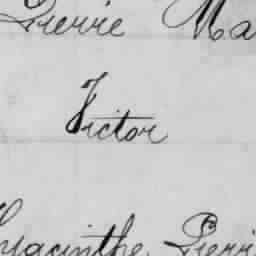 Pierre Ma
Victor
Hyacinthe Pierr